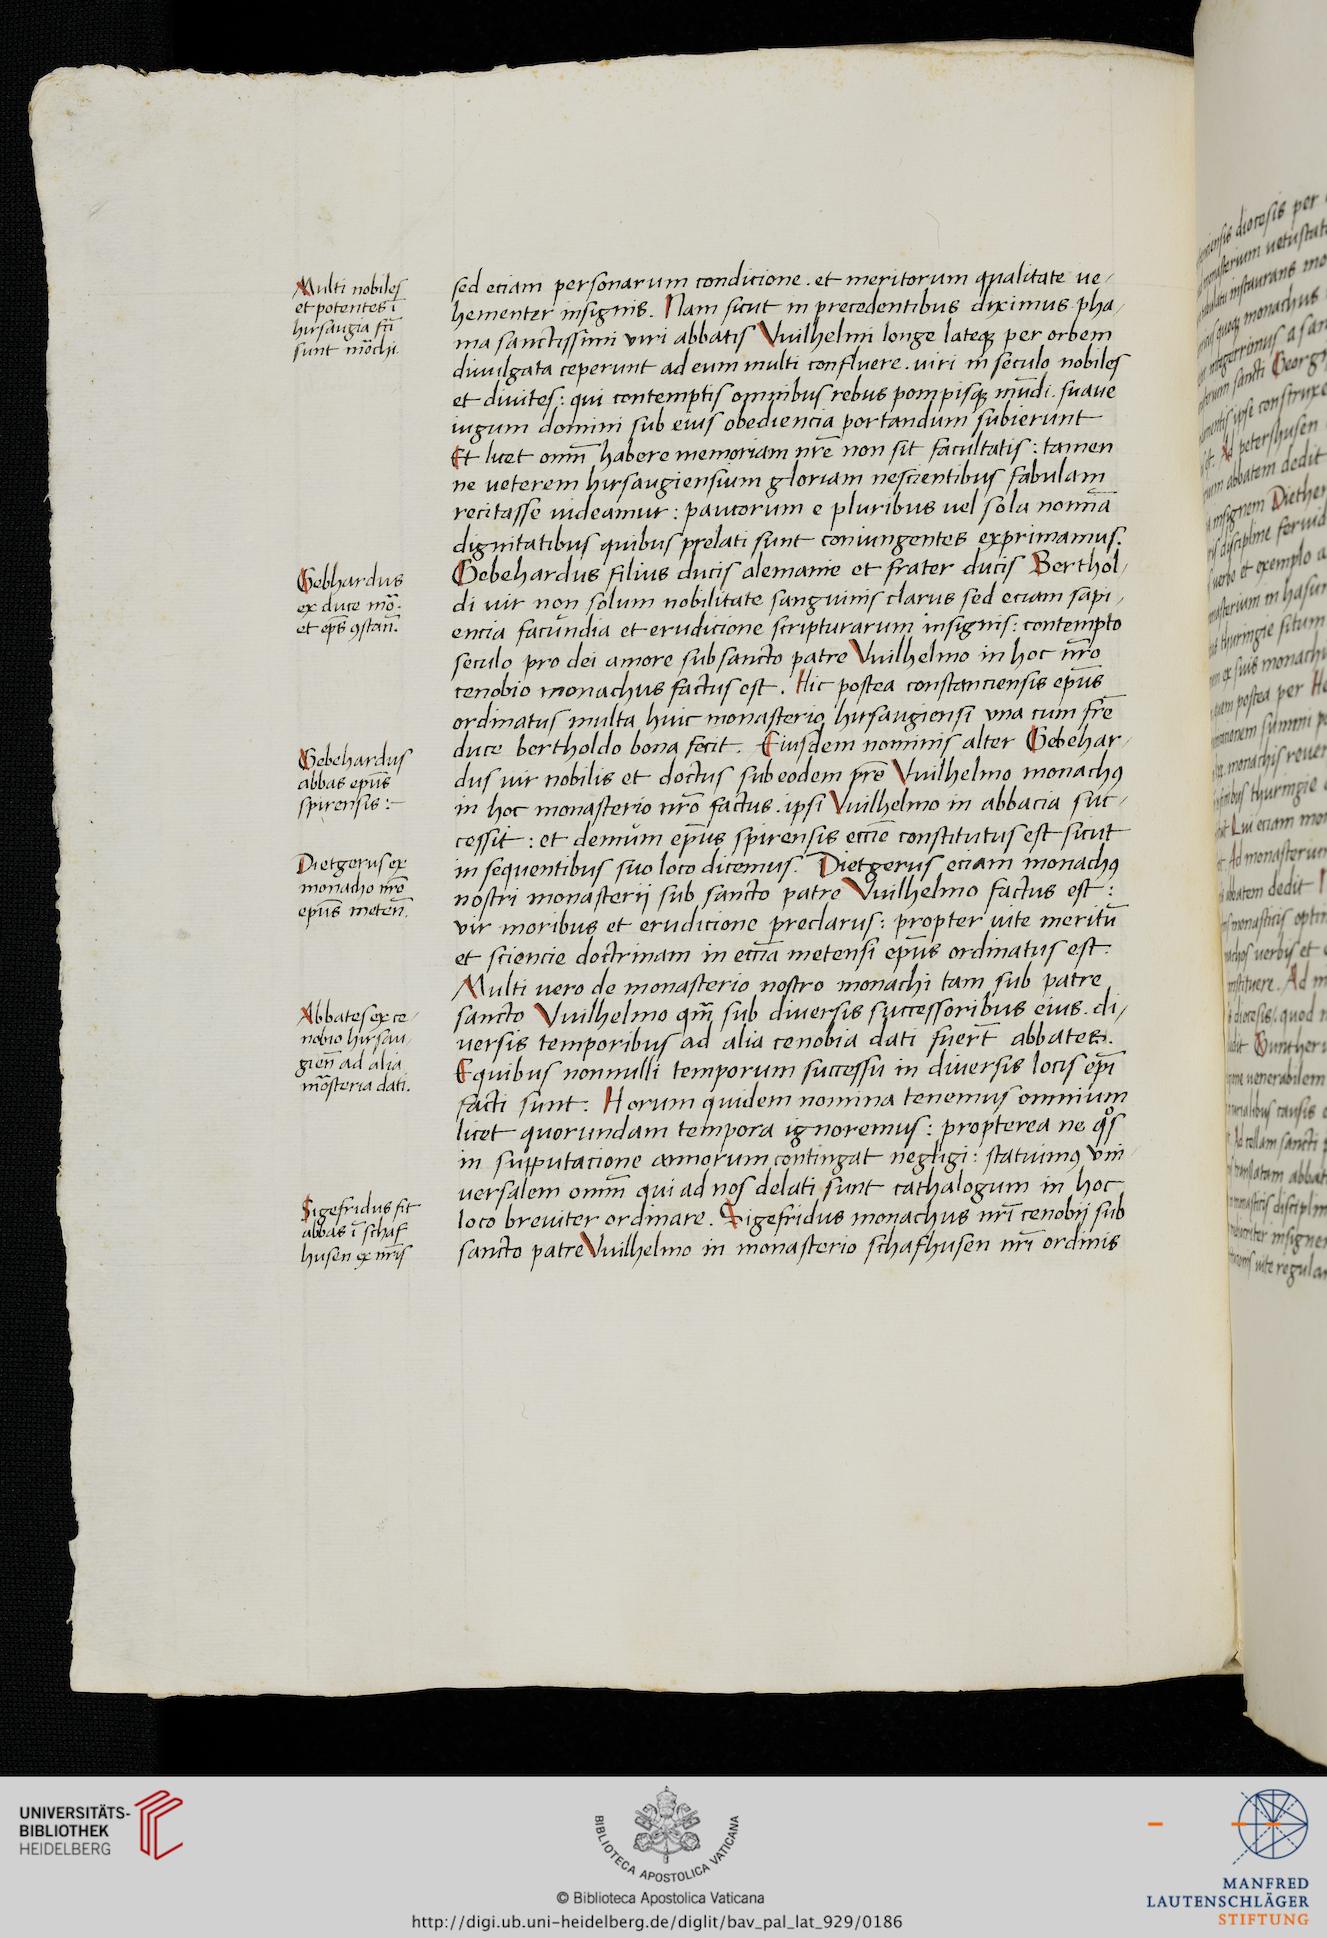 Multi nobiles
et potentes ī
hirsaugia fc̄i
sunt mōchi.
sed eciam personarum condicione . et meritorum qualitate ve/
hementer insignis. Nam sicut in precedentibus diximus pha/
ma sanctissimi viri abbatis Vuilhelmi longe lateq; per orbem
divulgata ceperunt ad eum multi confluere . viri in seculo nobiles
et divites: qui contemptis omnibus rebus pompisq; mūdi . suave
iugum domini sub eius obediencia portandum subierunt
Et licet omnī habere memoriam nr̄e non sit facultatis: tamen
ne veterem hirsaugiensium gloriam nescientibus fabulam
recitasse videamur: paucorum e pluribus vel sola nomīa
dignitatibus quibus prelati sunt coniungentes exprimamus.
Gebhardus
ex duce mō.
et ep̄s ꝯstan̄.
Gebehardus filius ducis alemanie et frater ducis Berthol/
di vir non solum nobilitate sanguinis clarus sed eciam sapi/
encia facundia et erudicione scripturarum insignis: contempto
seculo pro dei amore sub sancto patre Vuilhelmo in hoc nr̄o
cenobio monachus factus est. Hic postea constanciensis ep̄us
ordinatus multa huic monasterio hirsaugiensi una cum fr̄e
duce bertholdo bona fecit. Eiusdem nominis alter Gebehar/
Gebehardus
abbas ep̄us
spirensis:
dus vir nobilis et doctus sub eodem pr̄e Vuilhelmo monachꝰ
in hoc monasterio nr̄o factus . ipsi Vuilhelmo in abbacia suc/
cessit: et demum ep̄us spirensis ecc̄ie constitutus est sicut
in sequentibus suo loco dicemus. Dietgerus eciam monachꝰ
Dietgerus ex
monacho nr̄o
ep̄us meten̄.
nostri monasterij sub sancto patre Vuilhelmo factus est:
vir moribus et erudicione preclarus: propter vite meritū
et sciencie doctrinam in ecc̄ia metensi ep̄us ordinatus est.
Multi vero de monasterio nostro monachi tam sub patre
Abbates ex ce/
nobio hirsau/
gien̄ ad alia
mōsteria dati.
sancto Vuilhelmo qm̄ sub diversis successoribus eius . di/
versis temporibus ad alia cenobia dati fuerūt abbates.
E quibus nonnulli temporum successu in diversis locis ep̄i
facti sunt: Horum quidem nomina tenemus omnium
licet quorundam tempora ignoremus: propterea ne qͦs
in supputacione annorum contingat negligi: statuimꝰ vni/
versalem omnī qui ad nos delati sunt cathalogum in hoc
Sigefridus fit
abbas ī schaf
husen ex nr̄is
loco breviter ordinare. Sigefridus monachus nr̄i cenobij sub
sancto patre Vuilhelmo in monasterio schafhusen nr̄i ordinis
UNIVERSITÄTS-
BIBLIOTHEK
HEIDELBERG
BIBLIOTECA APOSTOLICA VATICANA
© Biblioteca Apostolica Vaticana
http://digi.ub.uni-heidelberg.de/diglit/bav_pal_lat_929/0186
MANFRED
LAUTENSCHLÄGER
STIFTUNG